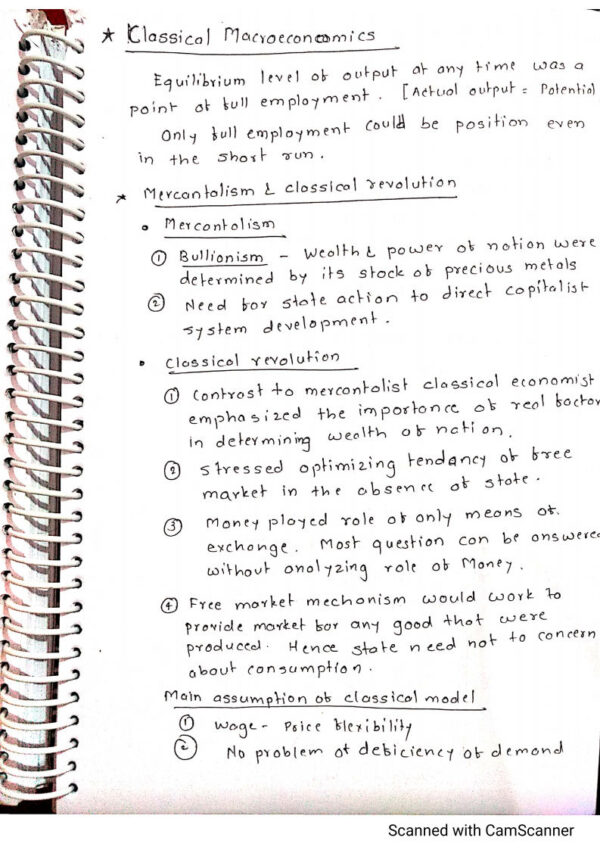 * Classical Macroeconomics
Equilibrium level of output at any time was a
point of full employment. [Actual output = Potential
Only full employment could be position even
in the short run.
* Mercantalism & classical revolution
• Mercantolism
① Bullionism - Wealth & power of nation were
determined by its stock of precious metals
② Need for state action to direct capitalist
system development.
• Classical revolution
① Contrast to mercantalist classical economist
emphasized the importance of real factor
in determining wealth of nation.
② Stressed optimizing tendancy of free
market in the absence of state.
③ Money played role of only means of
exchange. Most question can be answered
without analyzing role of Money.
④ Free market mechanism would work to
provide market for any good that were
produced. Hence state need not to concern
about consumption.
Main assumption of classical model
① Wage - Price flexibility
② No problem of deficiency of demand
Scanned with CamScanner